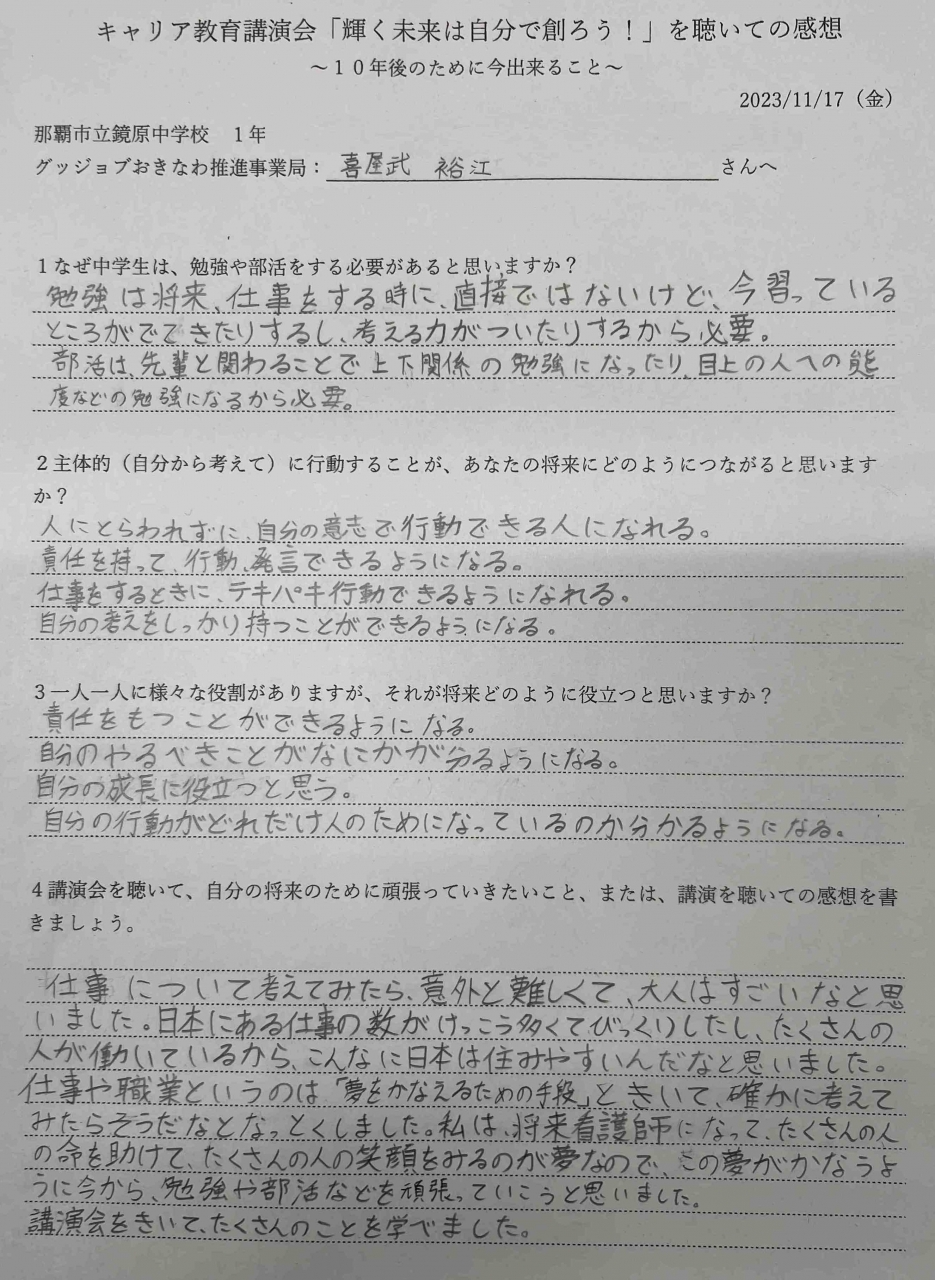 キャリア教育講演会「輝く未来は自分で創ろう！」を聴いての感想
～１０年後のために今出来ること～
2023/11/17（金）
那覇市立鏡原中学校　１年
グッジョブおきなわ推進事業局：喜屋武　裕江　さんへ
１なぜ中学生は、勉強や部活をする必要があると思いますか？
勉強は将来、仕事をする時に、直接ではないけど、今習っている
ところがでできたりするし、考える力がついたりするから必要。
部活は、先輩と関わることで上下関係の勉強になったり、目上の人への態
度などの勉強になるから必要。
２主体的（自分から考えて）に行動することが、あなたの将来にどのようにつながると思います
か？
人にとらわれずに、自分の意志で行動できる人になれる。
責任を持って、行動、発言できるようになる。
仕事をするときに、テキパキ行動できるようになれる。
自分の考えをしっかり持つことができるようになる。
３一人一人に様々な役割がありますが、それが将来どのように役立つと思いますか？
責任をもつことができるようになる。
自分のやるべきことがなにかが分るようになる。
自分の成長に役立つと思う。
自分の行動がどれだけ人のためになっているのか分かるようになる。
４講演会を聴いて、自分の将来のために頑張っていきたいこと、または、講演を聴いての感想を書
きましょう。
仕事について考えてみたら、意外と難しくて、大人はすごいなと思
いました。日本にある仕事の数がけっこう多くてびっくりしたし、たくさんの
人が働いているから、こんなに日本は住みやすいんだなと思いました。
仕事や職業というのは「夢をかなえるための手段」ときいて、確かに考えて
みたらそうだなとなっとくしました。私は、将来看護師になって、たくさんの人
の命を助けて、たくさんの人の笑顔をみるのが夢なので、この夢がかなうよ
うに今から、勉強や部活などを頑張っていこうと思いました。
講演会をきいて、たくさんのことを学べました。